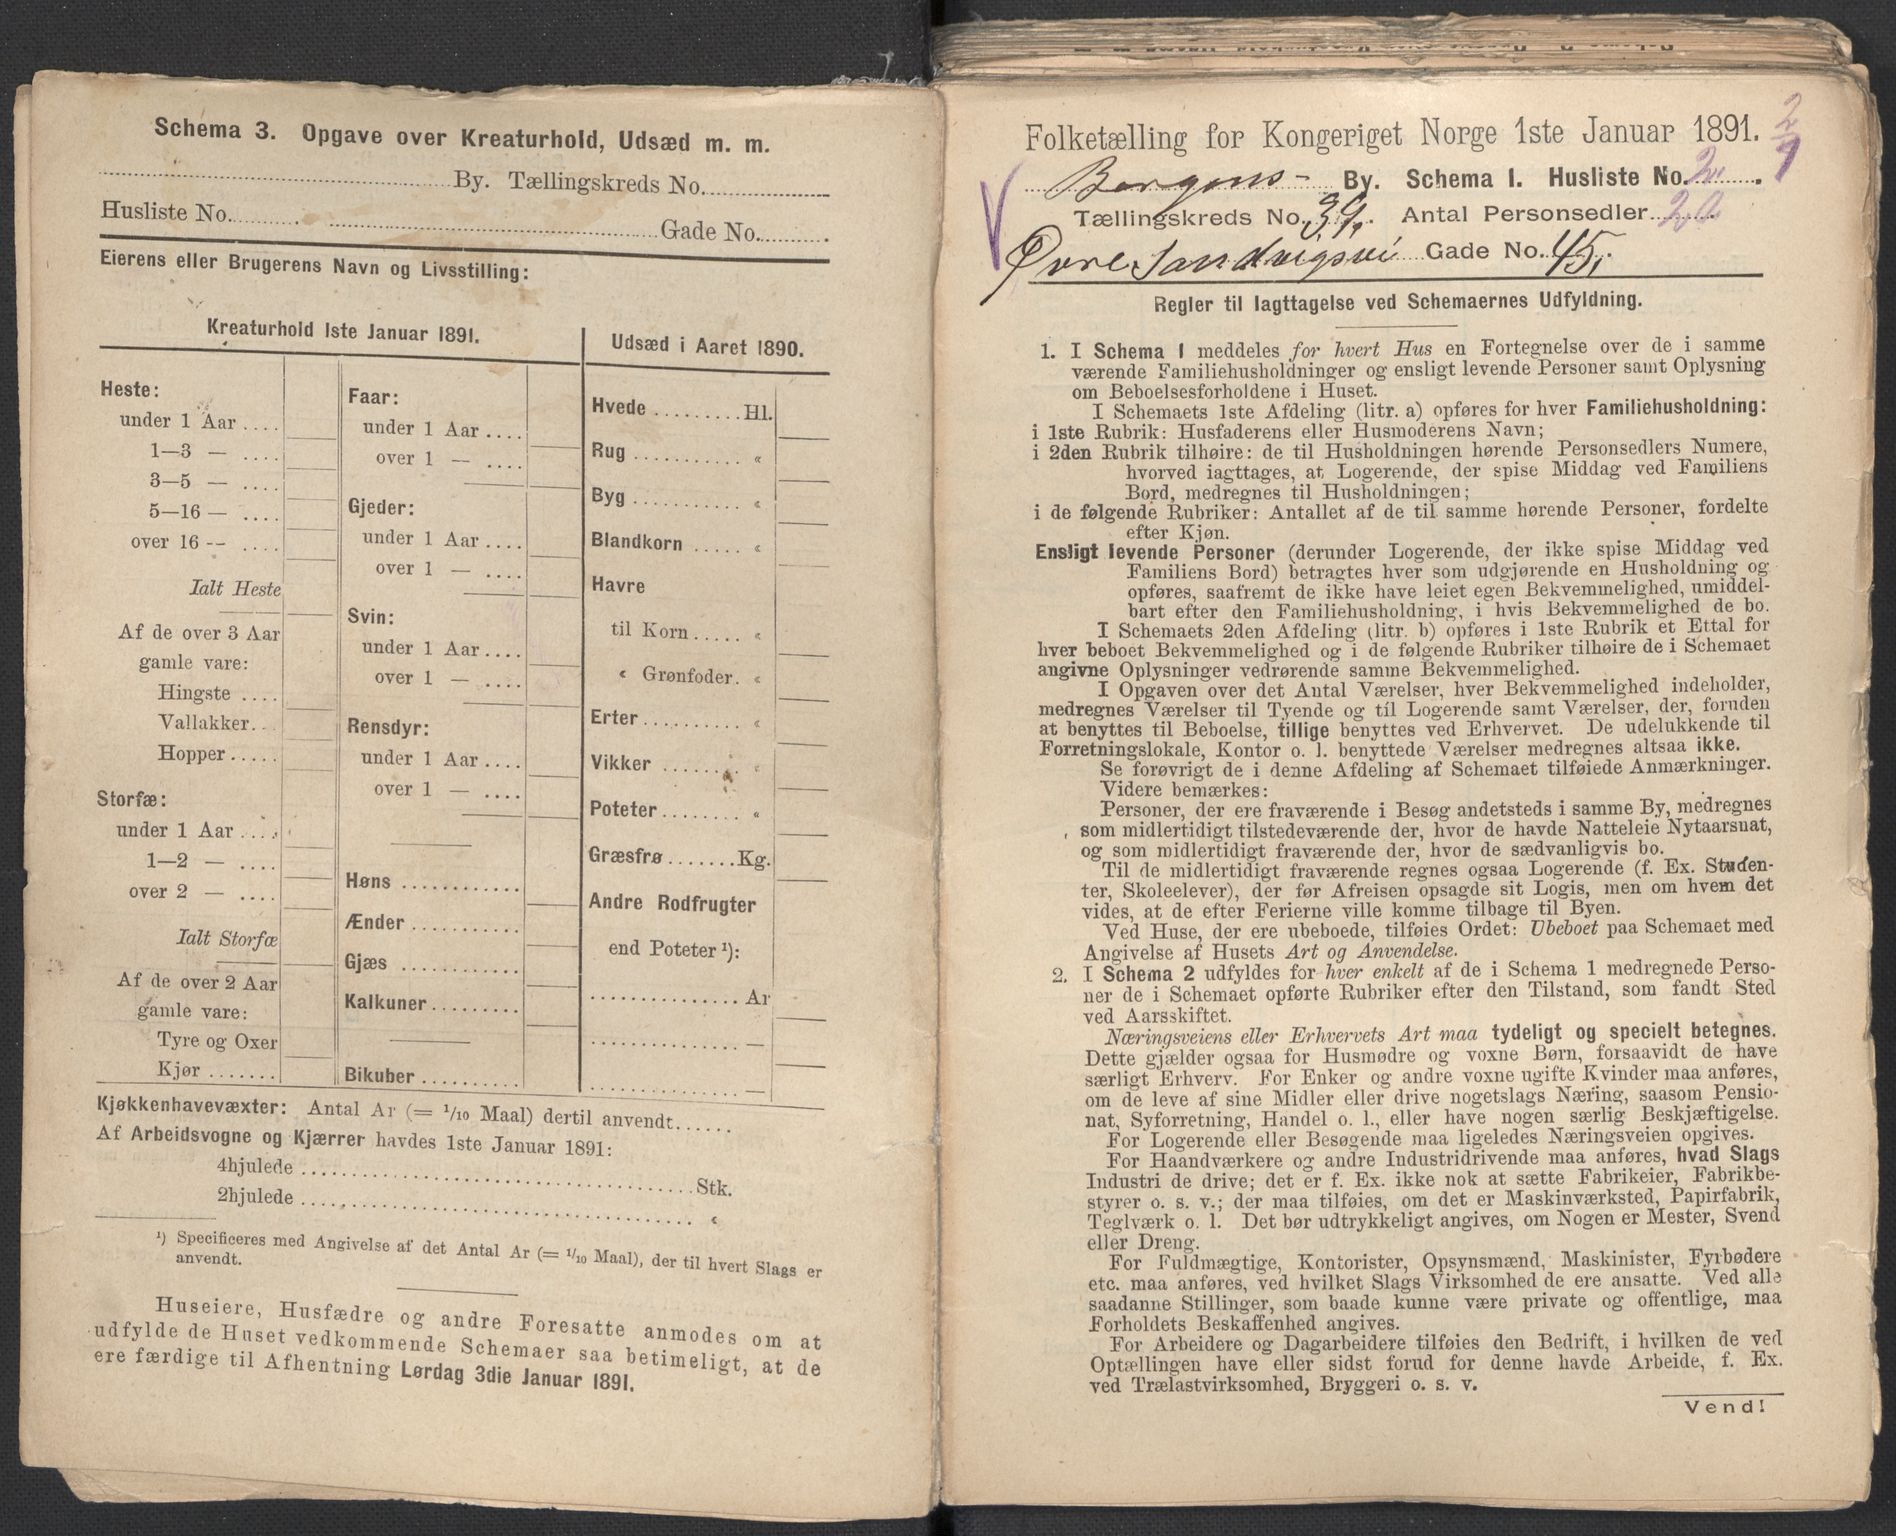 Schema 3. Opgave over Kreaturhold, Udsæd m. m.
By. Tællingskreds No.
Husliste No. Gade No.
Eierens eller Brugerens Navn og Livsstilling:
Kreaturhold 1ste Januar 1891.
Heste:
under 1 Aar
1—3 —
3—5 —
5—16 —
over 16 —
Ialt Heste
Af de over 3 Aar
gamle vare:
Hingste
Vallakker
Hopper
Storfæ:
under 1 Aar
1—2 —
over 2 —
Ialt Storfæ
Af de over 2 Aar
gamle vare:
Tyre og Oxer
Kjør
Faar:
under 1 Aar
over 1 —
Gjeder:
under 1 Aar
over 1 —
Svin:
under 1 Aar
over 1 —
Rensdyr:
under 1 Aar
over 1 —
Høns
Ænder
Gjæs
Kalkuner
Bikuber
Udsæd i Aaret 1890.
Hvede Hl.
Rug «
Byg «
Blandkorn «
Havre
til Korn «
« Grønfoder «
Erter «
Vikker «
Poteter «
Græsfrø Kg.
Andre Rodfrugter
end Poteter ¹):
Ar
—
—
Kjøkkenhavevæxter: Antal Ar (= 1/10 Maal) dertil anvendt
Af Arbeidsvogne og Kjærrer havdes 1ste Januar 1891:
4hjulede Stk.
2hjulede «
¹) Specificeres med Angivelse af det Antal Ar (= 1/10 Maal), der til hvert Slags er
anvendt.
Huseiere, Husfædre og andre Foresatte anmodes om at
udfylde de Huset vedkommende Schemaer saa betimeligt, at de
ere færdige til Afhentning Lørdag 3die Januar 1891.
Folketælling for Kongeriget Norge 1ste Januar 1891.
Bergens By. Schema 1. Husliste No. 2.
Tællingskreds No. 39. Antal Personsedler 20
Øvre Sandvigsvei Gade No. 45.
Regler til Iagttagelse ved Schemaernes Udfyldning.
1. I Schema 1 meddeles for hvert Hus en Fortegnelse over de i samme
værende Familiehusholdninger og ensligt levende Personer samt Oplysning
om Beboelsesforholdene i Huset.
I Schemaets 1ste Afdeling (litr. a) opføres for hver Familiehusholdning:
i 1ste Rubrik: Husfaderens eller Husmoderens Navn;
i 2den Rubrik tilhøire: de til Husholdningen hørende Personsedlers Numere,
hvorved iagttages, at Logerende, der spise Middag ved Familiens
Bord, medregnes til Husholdningen;
i de følgende Rubriker: Antallet af de til samme hørende Personer, fordelte
efter Kjøn.
Ensligt levende Personer (derunder Logerende, der ikke spise Middag ved
Familiens Bord) betragtes hver som udgjørende en Husholdning og
opføres, saafremt de ikke have leiet egen Bekvemmelighed, umiddel-
bart efter den Familiehusholdning, i hvis Bekvemmelighed de bo.
I Schemaets 2den Afdeling (litr. b) opføres i 1ste Rubrik et Ettal for
hver beboet Bekvemmelighed og i de følgende Rubriker tilhøire de i Schemaet
angivne Oplysninger vedrørende samme Bekvemmelighed.
I Opgaven over det Antal Værelser, hver Bekvemmelighed indeholder,
medregnes Værelser til Tyende og til Logerende samt Værelser, der, foruden
at benyttes til Beboelse, tillige benyttes ved Erhvervet. De udelukkende til
Forretningslokale, Kontor o. l. benyttede Værelser medregnes altsaa ikke.
Se forøvrigt de i denne Afdeling af Schemaet tilføiede Anmærkninger.
Videre bemærkes:
Personer, der ere fraværende i Besøg andetsteds i samme By, medregnes
som midlertidigt tilstedeværende der, hvor de havde Natteleie Nytaarsnat,
og som midlertidigt fraværende der, hvor de sædvanligvis bo.
Til de midlertidigt fraværende regnes ogsaa Logerende (f. Ex. Studen-
ter, Skoleelever), der før Afreisen opsagde sit Logis, men om hvem det
vides, at de efter Ferierne ville komme tilbage til Byen.
Ved Huse, der ere ubeboede, tilføies Ordet: Ubeboet paa Schemaet med
Angivelse af Husets Art og Anvendelse.
2. I Schema 2 udfyldes for hver enkelt af de i Schema 1 medregnede Perso-
ner de i Schemaet opførte Rubriker efter den Tilstand, som fandt Sted
ved Aarsskiftet.
Næringsveiens eller Erhvervets Art maa tydeligt og specielt betegnes.
Dette gjælder ogsaa for Husmødre og voxne Børn, forsaavidt de have
særligt Erhverv. For Enker og andre voxne ugifte Kvinder maa anføres,
om de leve af sine Midler eller drive nogetslags Næring, saasom Pensio-
nat, Syforretning, Handel o. l., eller have nogen særlig Beskjæftigelse.
For Logerende eller Besøgende maa ligeledes Næringsveien opgives.
For Haandværkere og andre Industridrivende maa anføres, hvad Slags
Industri de drive; det er f. Ex. ikke nok at sætte Fabrikeier, Fabrikbe-
styrer o. s. v.; der maa tilføies, om det er Maskinværksted, Papirfabrik,
Teglværk o. l. Det bør udtrykkeligt angives, om Nogen er Mester, Svend
eller Dreng.
For Fuldmægtige, Kontorister, Opsynsmænd, Maskinister, Fyrbødere
etc. maa anføres, ved hvilket Slags Virksomhed de ere ansatte. Ved alle
saadanne Stillinger, som baade kunne være private og offentlige, maa
Forholdets Beskaffenhed angives.
For Arbeidere og Dagarbeidere tilføies den Bedrift, i hvilken de ved
Optællingen have eller sidst forud for denne havde Arbeide, f. Ex.
ved Trælastvirksomhed, Bryggeri o. s. v.
Vend!